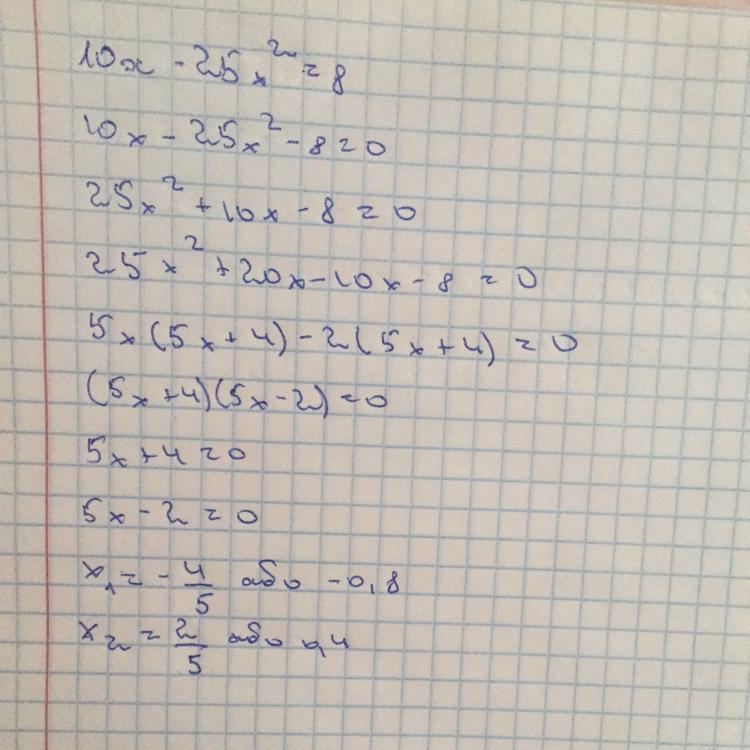 10x - 25x² = 8
10x - 25x² - 8 = 0
25x² + 10x - 8 = 0
25x² + 20x - 10x - 8 = 0
5x(5x + 4) - 2(5x + 4) = 0
(5x + 4)(5x - 2) = 0
5x + 4 = 0
5x - 2 = 0
x₁ = - 4/5 або -0,8
x₂ = 2/5 або 0,4